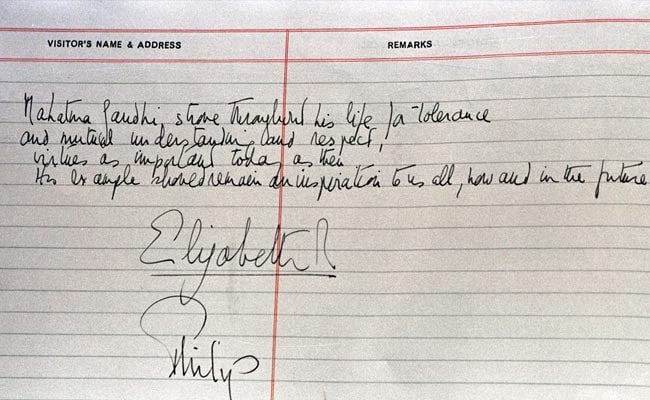 VISITOR'S NAME & ADDRESS REMARKS
Mahatma Gandhi, strove throughout his life for tolerance
and mutual understanding and respect,
virtues as important today as then
His example should remain an inspiration to us all, now and in the future
Elizabeth R
Philip